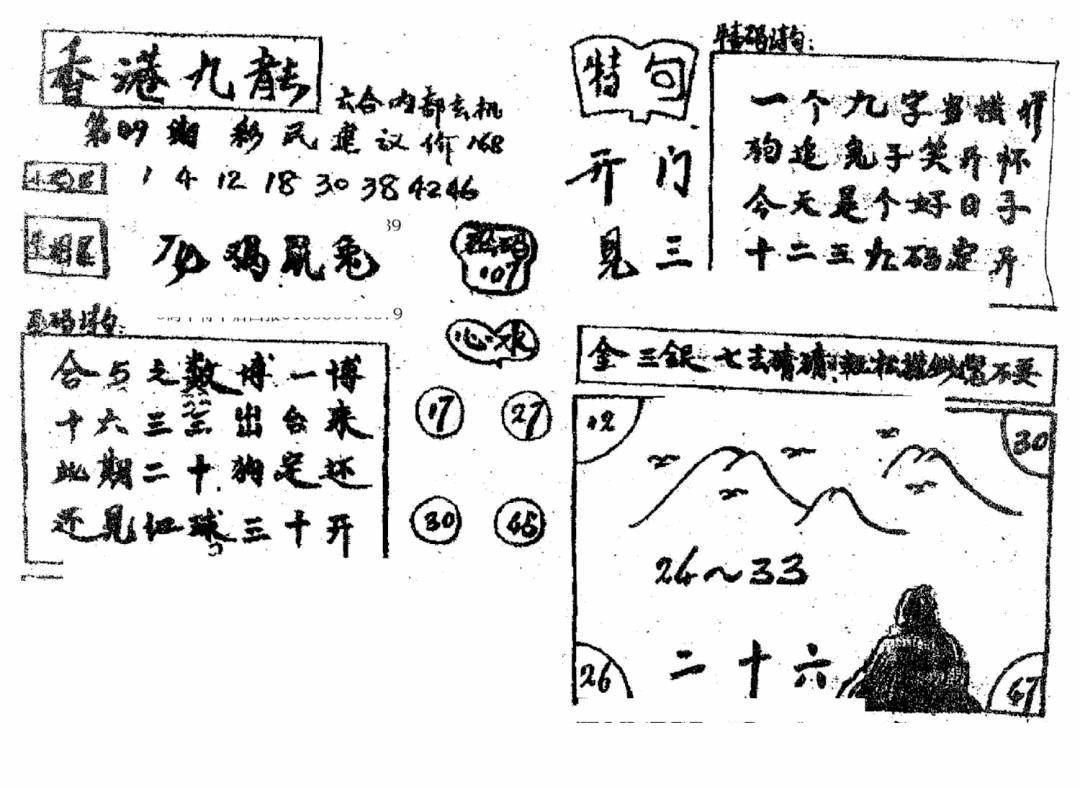 香港九龍
六合内部玄机
第09期 彩民建议价168
1 4 12 18 30 38 42 46
生肖区
鸡鼠兔
39
独码
107
心水
合与之数博一博
十六三至出台来
此期二十狗定还
还见红球三十开
17 27
30 45
特句
开门
见三
特码诗句:
一个九字当横
狗追兔子笑开怀
今天是个好日子
十二五九码定开
金三銀七去睛睛 輕松 不要
12
30
24~33
二十六
26
47